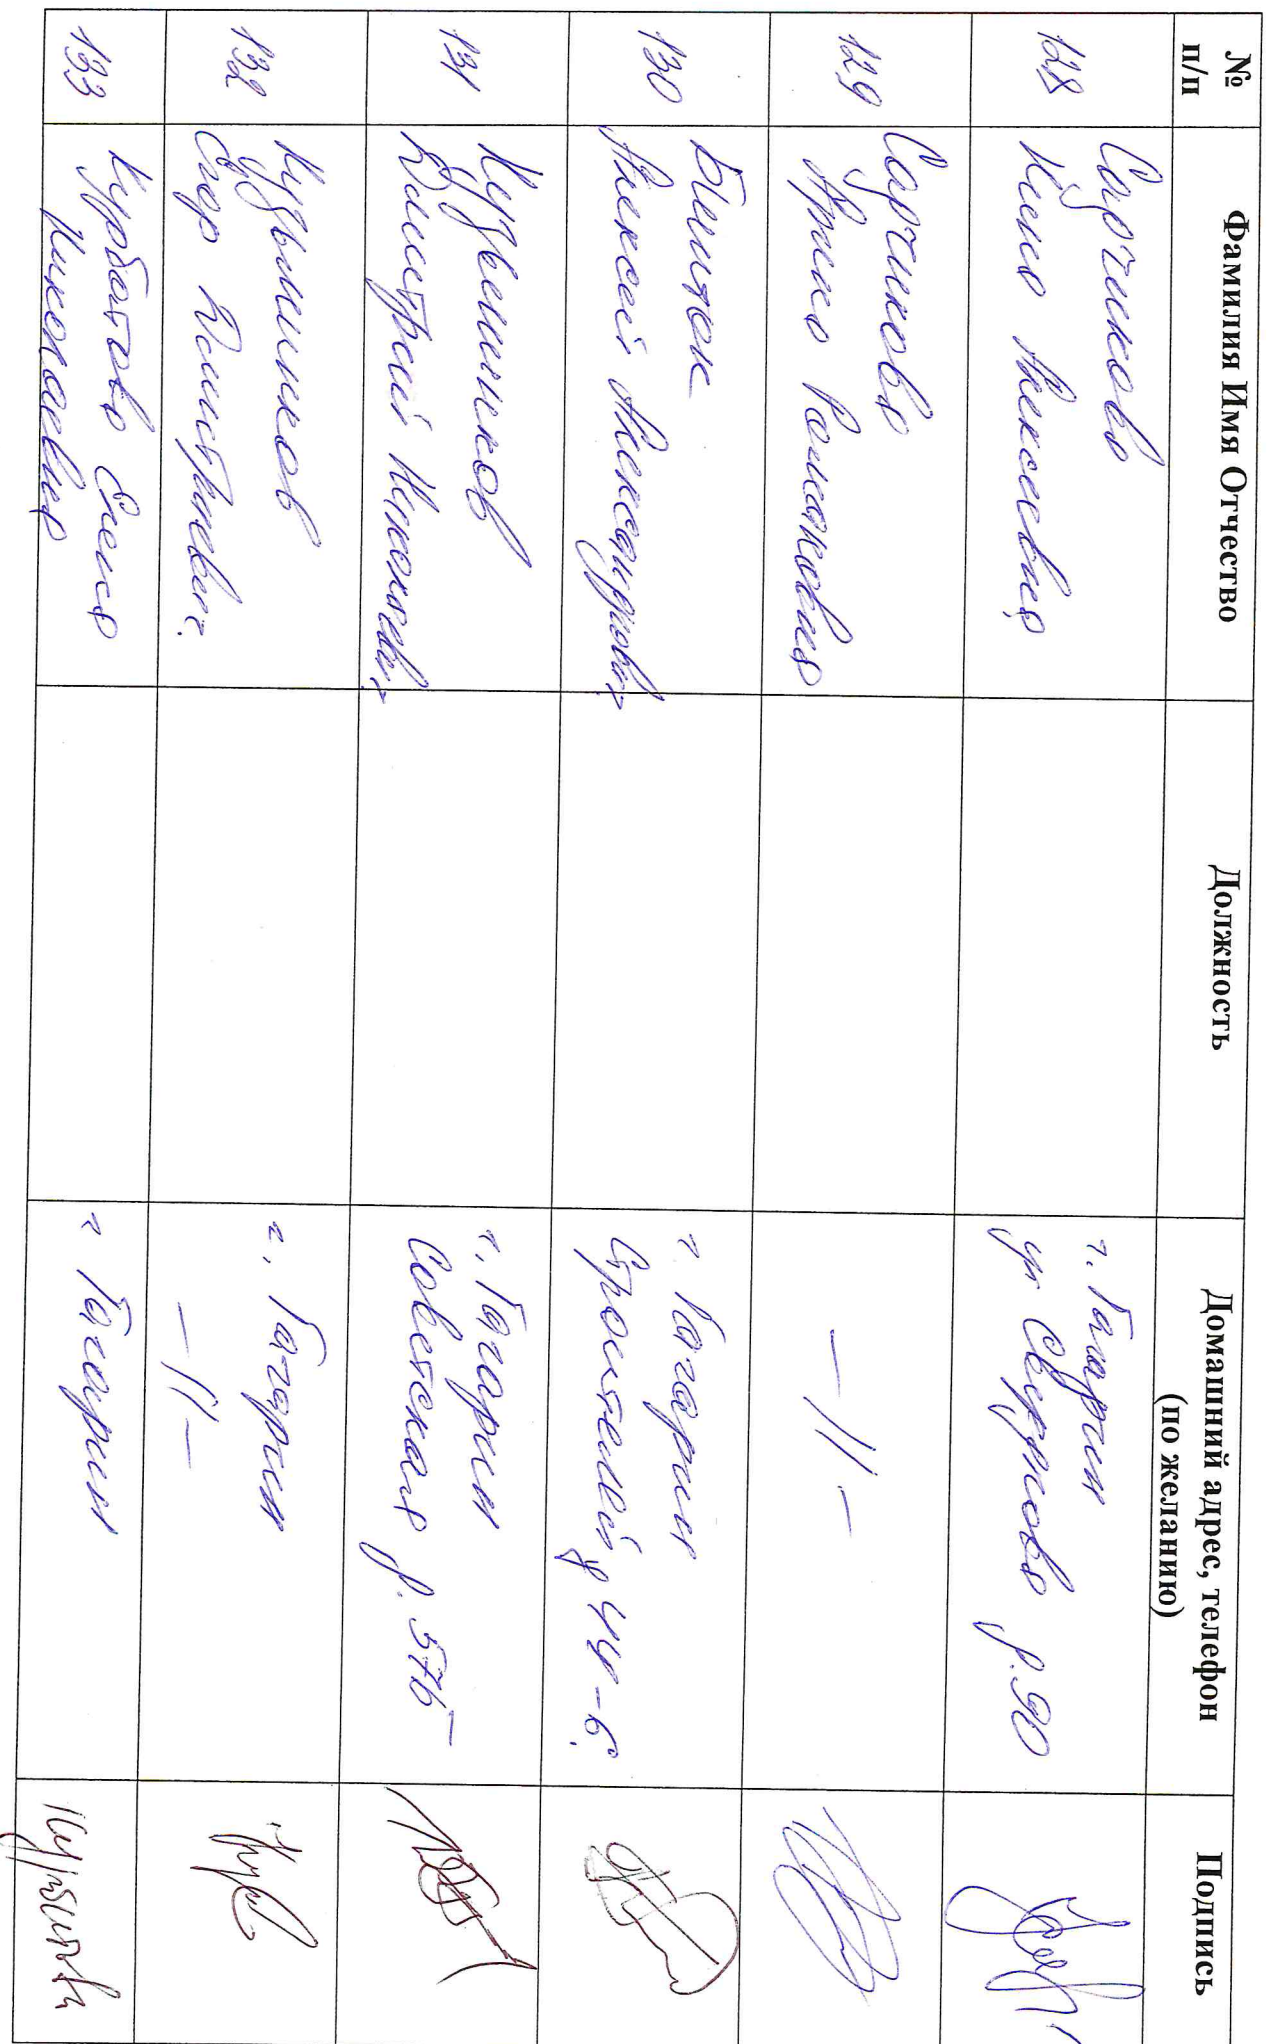 № п/п Фамилия Имя Отчество Должность Домашний адрес, телефон (по желанию) Подпись
128 Сарчикова
Инна Алексеевна
г. Гагарин
ул Свердлова д. 90
129 Сарчикова
Арина Романовна
—//—
130 Биток
Алексей Александрович
г. Гагарин
Строителей д 44-6.
131 Кузьменков
Дмитрий Николаевич
г. Гагарин
Советская д. 57б
132 Кузьменков
Егор Дмитриевич
г. Гагарин
—//—
133 Курбатова Елена
Николаевна
г Гагарин